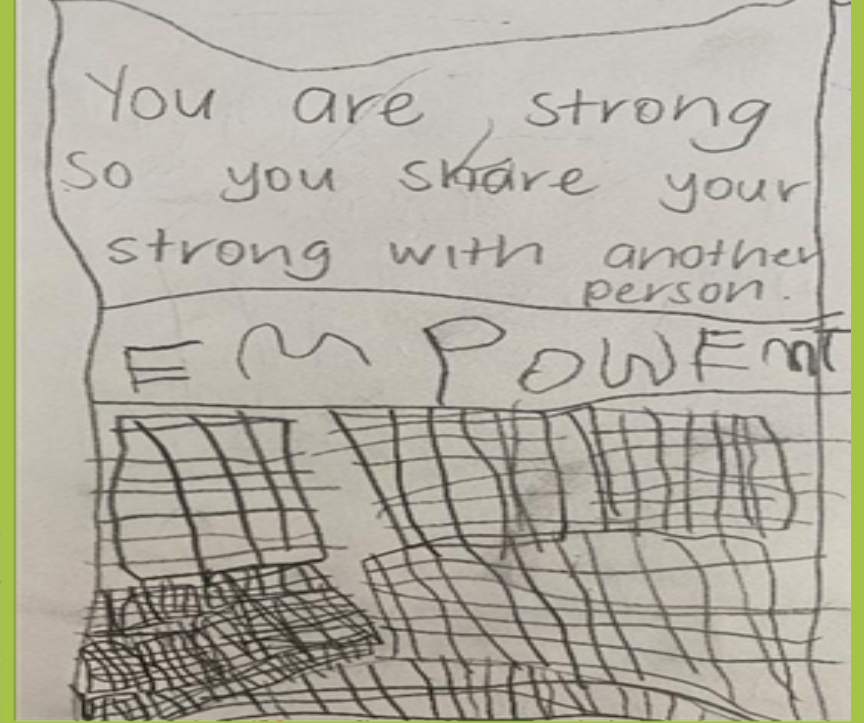 You are strong
so you share your
strong with another
person.
EMPOWEMT